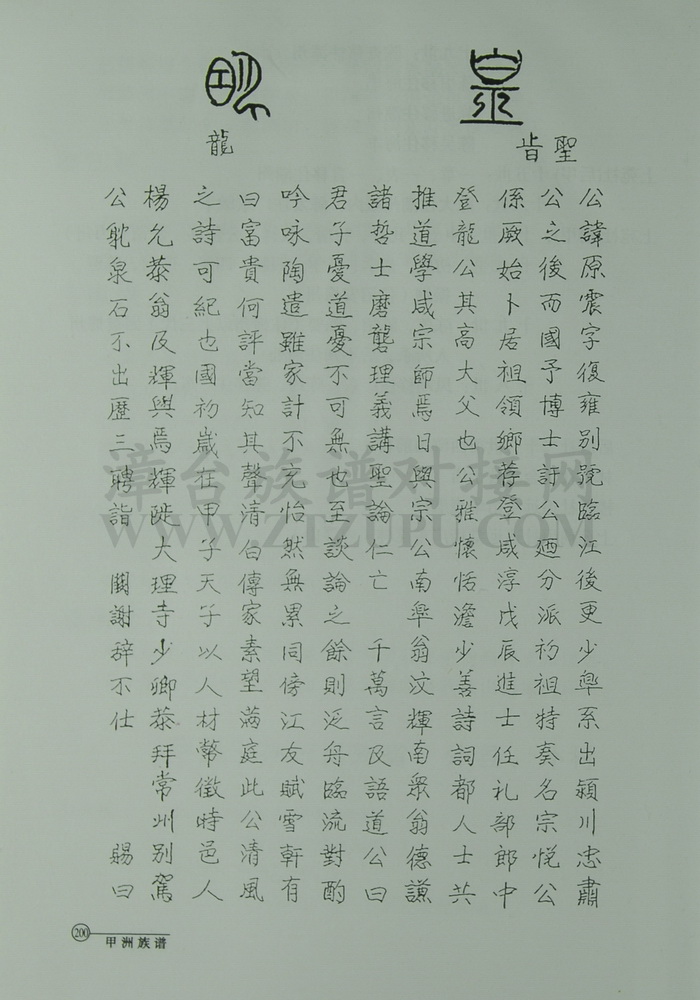 聖旨
龍
公諱原震字復雍別號臨江後更少皞系出潁川忠肅
公之後而國予博士訏公廼分派初祖特奏名宗悅公
係厥始卜居祖領鄉荐登咸淳戊辰進士任礼部郎中
登龍公其高大父也公雅懷恬澹少善詩詞都人士共
推道學咸宗師焉日與宗公南皞翁汶輝南衆翁德謙
諸哲士磨礲理義講聖論仁亡 千萬言及語道公曰
君子憂道憂不可無也至談論之餘則泛舟臨流對酌
吟咏陶遣雖家計不充怡然無累同傍江友賦雪軒有
曰富貴何評當知其聲清白傳家素望滿庭此公清風
之詩可紀也國初歲在甲子天子以人材幣徵時邑人
楊允恭翁及輝與焉輝陡大理寺少卿恭拜常州別駕
公躭泉石不出歷三聘詣 闕謝辞不仕 賜曰
200
甲洲族谱
漳台族谱对接网
WWW.ZTZUPU.COM